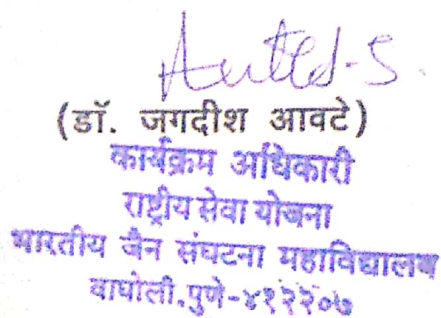 (डॉ. जगदीश आवटे)
कार्यक्रम अधिकारी
राष्ट्रीय सेवा योजना
भारतीय जैन संघटना महाविद्यालय
वाघोली.पुणे-४१२२०७